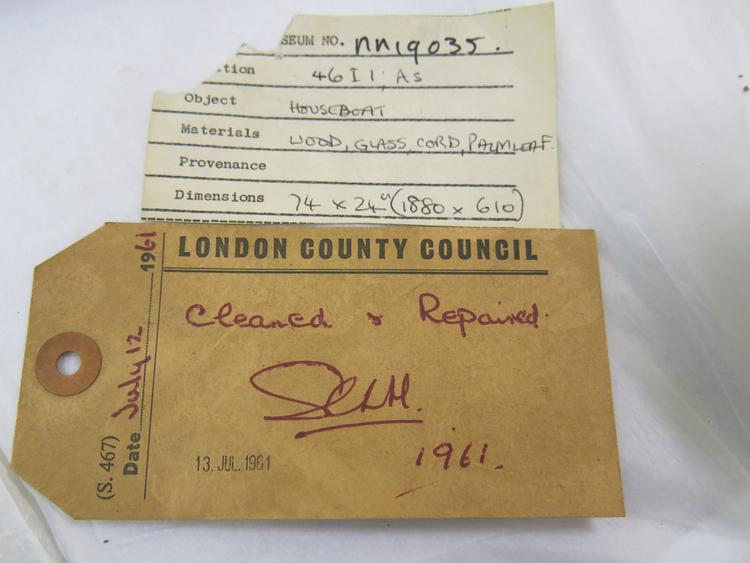 SEUM NO. nn19035.
tion 46 I 1; As
Object HOUSEBOAT
Materials WOOD, GLASS, CORD, PALMLEAF.
Provenance
Dimensions 74 x 24" (1880 x 610)
LONDON COUNTY COUNCIL
Cleaned & Repaired.
1961.
13. JUL. 1961
(S. 467)
Date July 12 1961